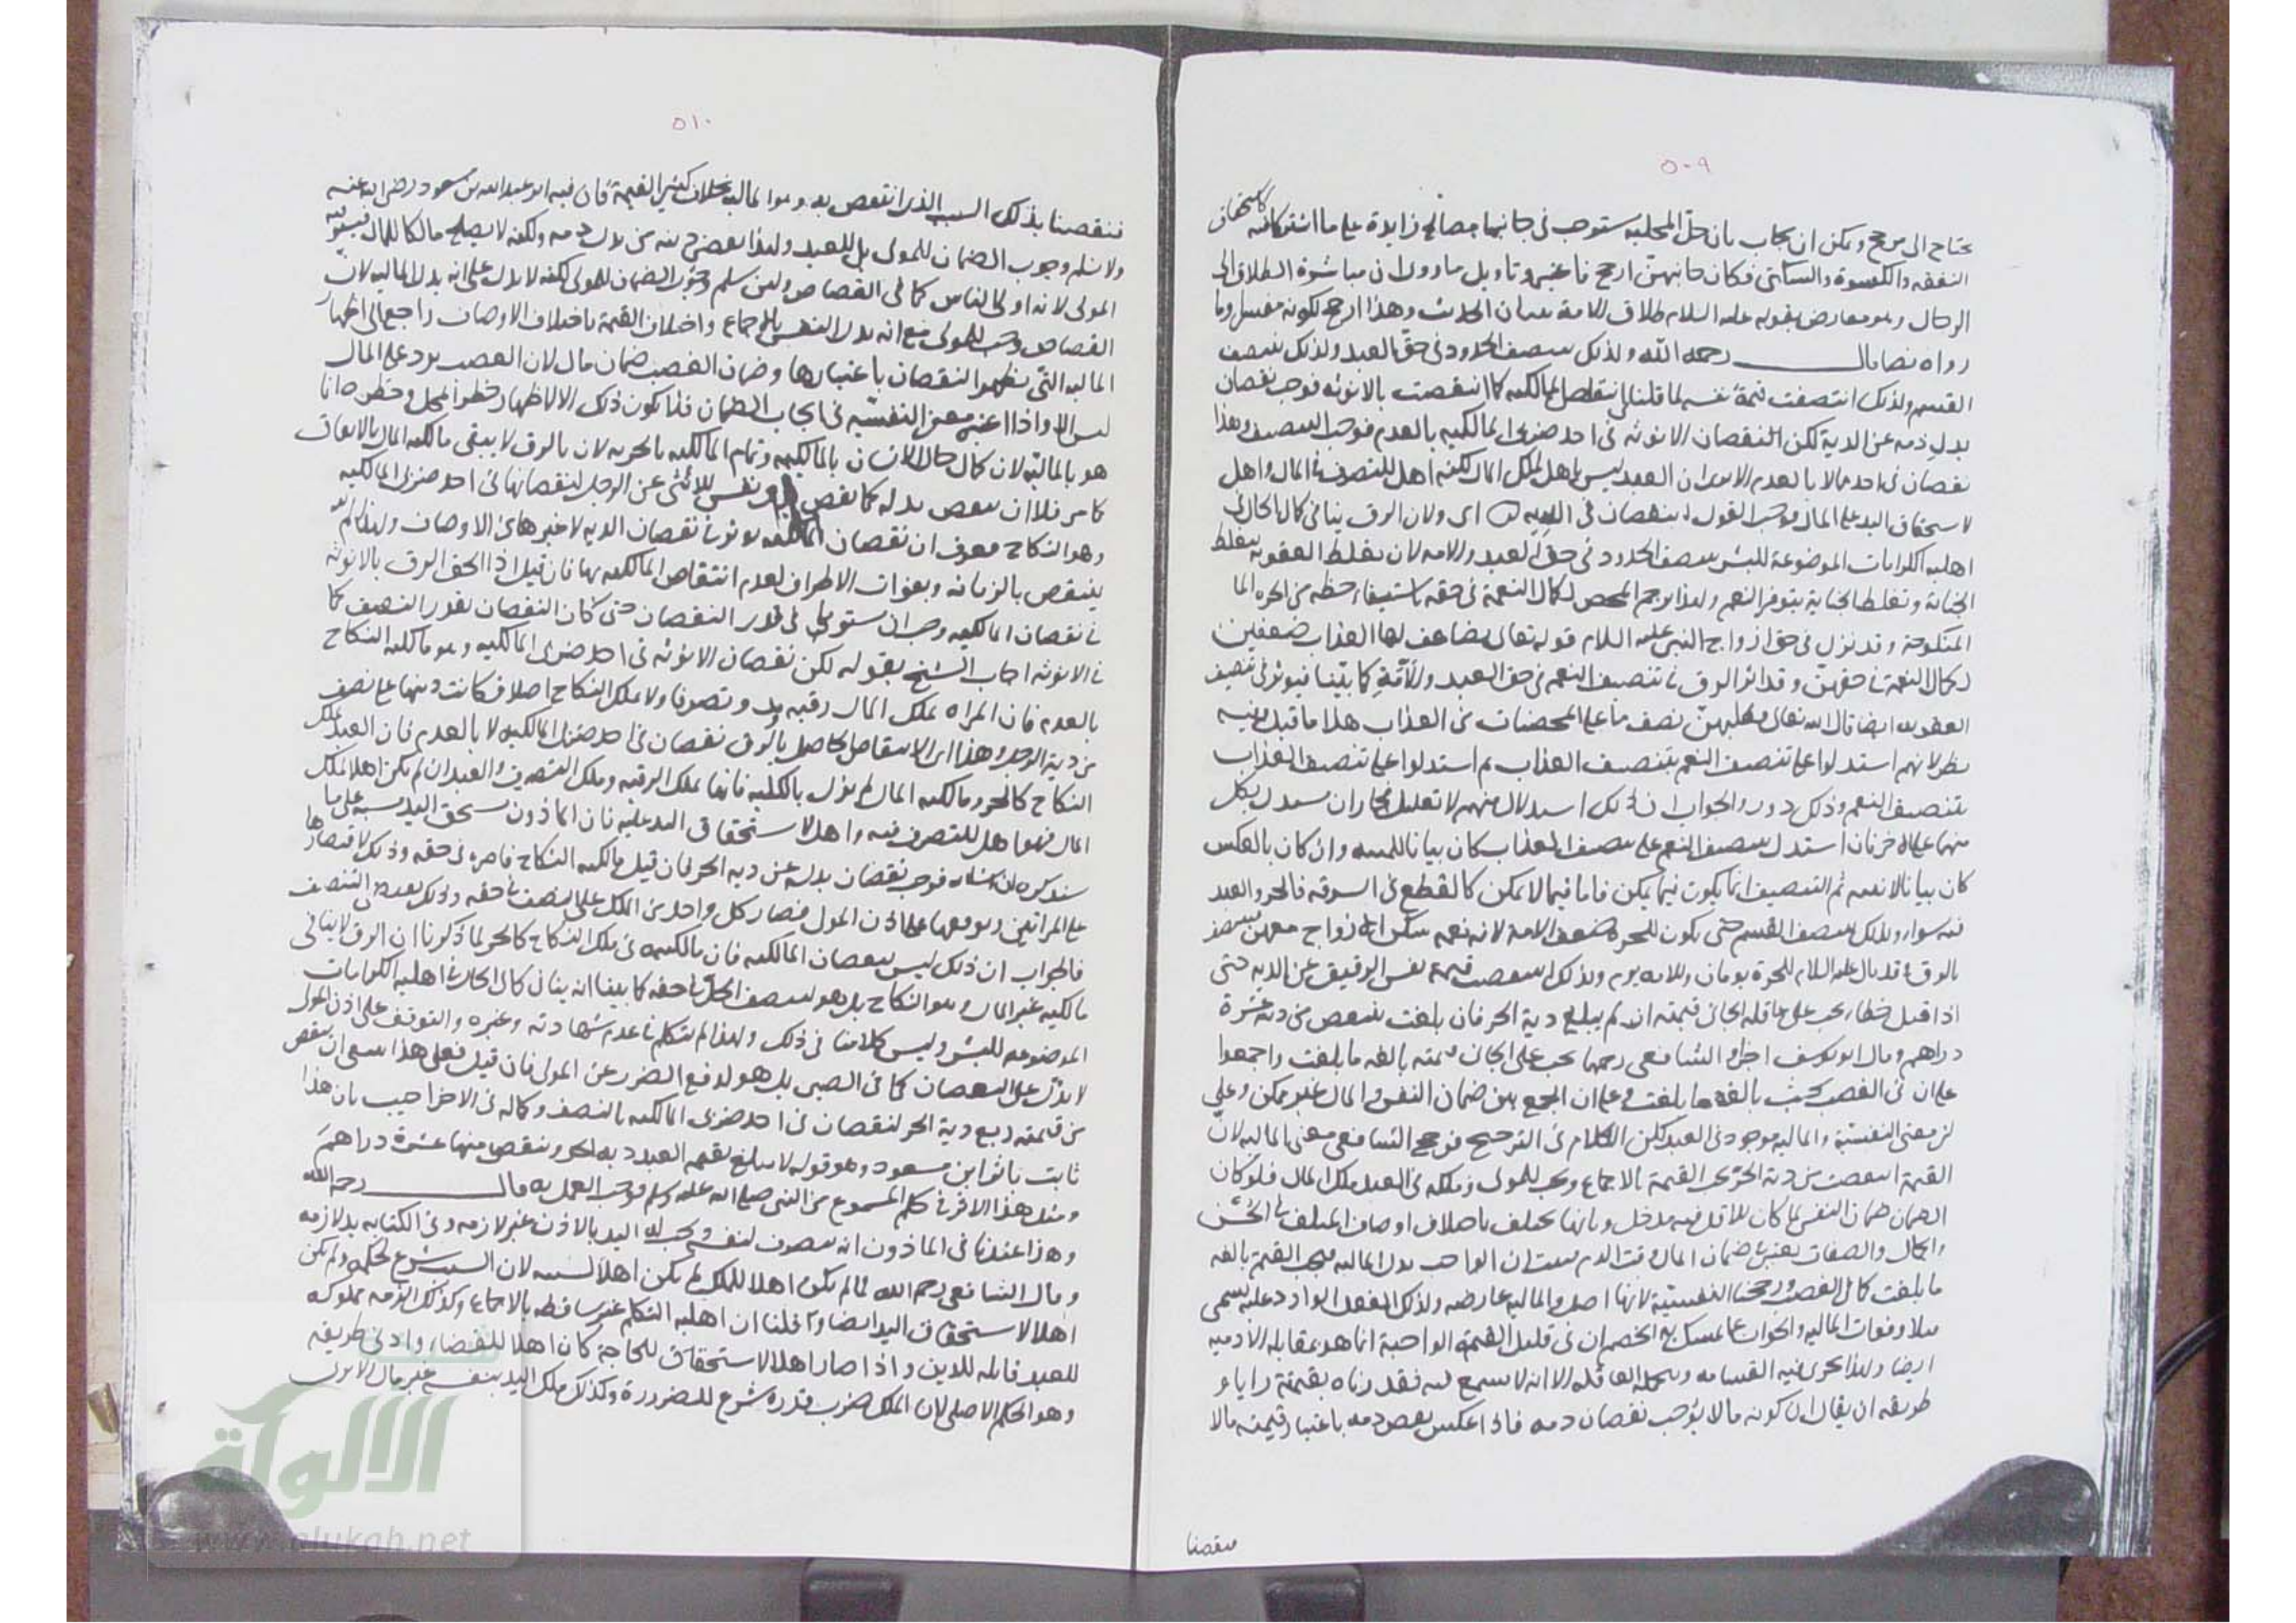 ٥٠٩
يحتاج الى مرجح ويمكن ان يجاب بان حل المحلية ستوجب فى جانبها مصالح زايدة على ما اشتركا فيه
النفقه والكسوة والسكنى فكان جانبهن ارجح فاعتبر وتاويل ماروى ان مباشرة الطلاق الى
الرجال وهو معارض بقوله عليه السلام طلاق الامة ثنتان الحديث وهذا ارجح لكونه مفسر وما
رواه نصا قال رحمه الله ولذلك ينصف الحدود فى حق العبد ولذلك ينصف
القسم ولذلك انتصفت قيمة نفسه لما قلنا لانتقاص المالكيه كما انتقصت بالانوثه فوجب نقصان
بدل دمه عن الدية لكن النقصان الانوثه فى احد ضربى المالكيه بالعدم فوجب التنصيف وهذا
نقصان فى احدهما لا بالعدم الا يرى ان العبد ليس باهل لملك المال لكنه اهل للتصرف فى المال واهل
لاستحقاق اليد على المال فوجب القول بنقصان فى الديه اى ولان الرق ينافى كمال الحال فى
اهليه الكرامات الموضوعة للبشر ينصف الحدود فى حق العبد والامه لان تغلظ العقوبه بتغلظ
الجنايه وتغلظ الجناية بتوفر النعم ولهذا يرجم المحصن لكمال النعمة فى حقه باستيفاء حظه من الحره
المنكوحة وقد نزل فى حق ازواج النبى عليه السلام قوله تعالى يضاعف لها العذاب ضعفين
لكمال النعمة فى حقهن وقد اثر الرق فى تنصيف النعم فى حق العبد والامة كما بينا فيوثر فى تنصيف
العقوبه ايضا قال الله تعالى فعليهن نصف ما على المحصنات من العذاب هذا ما قيل وفيه
نظر لانهم استدلوا على تنصيف النعم بتنصيف العذاب ثم استدلوا على تنصيف العذاب
بتنصيف النعم وذلك دور والجواب ان ذلك استدلال منهم لا تعليل فجاز ان يستدل بكل
منهما على الاخر فان استدل بتنصيف النعم على تنصيف العذاب كان بيانا للميه وان كان بالعكس
كان بيانا لانيه ثم التنصيف انما يكون فيما يمكن فاما فيما لا يمكن كالقطع فى السرقه فالحر والعبد
فيه سواء ولذلك ينصف القسم حتى يكون للحرة ضعف الامة لانه نعمه
بالرق وقد قال عليه السلام للحرة يومان وللامه يوم ولذلك انتقصت قيمة نفس الرقيق عن الديه حتى
اذا قتل خطاء يجب على عاقله الجانى قيمته ان لم يبلغ دية الحر فان بلغت ينقص من دته عشرة
دراهم وقال ابو يوسف اخرا والشافعى رحمهما يجب على الجانى قيمته بالغه ما بلغت واجمعوا
على ان فى الغصب يجب بالغه ما بلغت وعلى ان الجمع بين ضمان النفس والمال غير ممكن وعلى
ان معنى النفسية والماليه موجود فى العبد لكن الكلام فى الترجيح فرجح الشافعى معنى الماليه لان
القيمة انتقصت من دية الحر يجب القيمة بالاجماع ويجب للمولى وملكه فى العبد ملك المال فلو كان
الضمان ضمان النفس لما كان للاقل فيه مدخل وبانها تختلف باختلاف اوصاف المتلف فى الحسن
والجمال والصفات يعتبر فى ضمان المال دون الدم فثبت ان الواجب بدل الماليه فيجب القيمة بالغه
ما بلغت كما فى الغصب ورجحنا النفسية لانها اصل والماليه عارضه ولذلك الفعل الوارد عليه يسمى
قتلا وفوات الماليه والجواب عما تمسك به الخصم ان فى قليل القيمة الواجبة انما هو بمقابله الادميه
ايضا ولهذا يجرى فيه القسامه ويتحمله العاقله الا انه لا سمع فيه فقدرناه بقيمته رايا و
طريقه ان يقال ان كونه مالا يوجب نقصان دمه فاذا انعكس بعض دمه باعتبار قيمته مالا
فنقصنا
٥١٠
فنقصنا بذلك السبب الذى انتقص به وهو الماليه بخلاف كثير القيمة فان فيه اثر عبدالله بن مسعود رضى الله عنه
ولا نسلم وجوب الضمان للمولى بل للعبد ولهذا يقضى دينه من بدل دمه ولكنه لا يصلح مالكا للمال فيستوفيه
المولى لانه اولى الناس كما فى القصاص ولئن سلم وجوب الضمان للمولى لكنه لا يدل على انه بدل الماليه لان
القصاص وجب للمولى مع انه بدل النفس بالاجماع واختلاف القيمة باختلاف الاوصاف راجع الى اظهار
الماليه التى يظهر النقصان باعتبارها وضمان الغصب ضمان مال لان الغصب يرد على المال
ليس الا واذا اعتبر معنى النفسية فى ايجاب الضمان فلا يكون ذلك الا لاظهار خطر المحل وخطره انما
هو بالمالكية لان كمال حال الانسان بالمالكيه وتمام المالكيه بالحريه لان بالرق لا يبقى مالكيه المال بالاتفاق
كما مر فلا ان ينقص بدله كما نقص بدل نفس الانثى عن الرجل لنقصانها فى احد ضربى المالكيه
وهو النكاح معرف ان نقصان المالكيه يوثر فى نقصان الديه لا غيرها من الاوصاف ولهذا لم
ينتقص بالزمانه وبفوات الاطراف لعدم انتقاص المالكيه بها فان قيل اذا الحق الرق بالانوثه
فى نقصان المالكيه وجب ان يستويا فى قدر النقصان حتى كان النقصان بقدر النصف كما
فى الانوثه اجاب الشيخ بقوله لكن نقصان الانوثه فى احد ضربى المالكيه وهو مالكيه النكاح
بالعدم فان المراه تملك المال رقبه ويدا وتصرفا ولا تملك النكاح اصلا فكانت ديتها على نصف
من دية الرجل وهذا اى الانتقاص الحاصل بالرق نقصان فى احد ضربى المالكيه لا بالعدم فان العبد يملك
النكاح كالحر ومالكيه المال لم تزل بالكليه فانها بملك الرقبه وملك التصرف والعبد ان لم يكن اهلا لملك
المال فهو اهل للتصرف فيه واهل لاستحقاق اليد عليه فان الماذون يستحق اليد بنفسه على ما
سنذكره ان شاء الله فوجب نقصان بدله عن ديه الحر فان قيل مالكيه النكاح قاصره فى حقه وذلك لاقتصارها
على امراتين وتوقفها على اذن المولى فصار كل واحد من الملك على النصف فى حقه وذلك يوجب التنصيف
فالجواب ان ذلك ليس بنقصان المالكيه فان مالكيته فى ملك النكاح كالحر لما ذكرنا ان الرق لا ينافى
مالكيه غير المال وهو النكاح بل هو لتنصف الحل فى حقه كما بينا انه ينافى كمال الحال فى اهليه الكرامات
الموضوعه للبشر وليس كلامنا فى ذلك ولهذا لم نتكلم فى عدم شهادته وغيره والتوقف على اذن المولى
لا يدل على النقصان كما فى الصبى بل هو لدفع الضرر عن المولى فان قيل فعلى هذا ينبغى ان ينقص
من قيمته ربع دية الحر لنقصان فى احد ضربى المالكيه بالنصف وكماله فى الاخر اجيب بان هذا
ثابت باثر ابن مسعود وهو قوله لا يبلغ بقيمة العبد ديه الحر وينقص منها عشرة دراهم
ومثل هذا الاثر فى حكم المسموع من النبى صلى الله عليه وسلم فوجب العمل به قال رحمه الله
وهذا عندنا فى الماذون انه يتصرف لنفسه ويجب له اليد بالاذن غير لازمه وفى الكتابه يد لازمه
وقال الشافعى رحمه الله لما لم يكن اهلا للملك لم يكن اهلا لسببه لان السبب شرع لحكمه ولم يكن
اهلا لاستحقاق اليد ايضا وقلنا ان اهليه التكلم غير ساقطه بالاجماع وكذلك الذمه مملوكه
للعبد قابله للدين واذا صار اهلا للحاجة كان اهلا للقضاء وادنى طريقه
وهو الحكم الاصلى لان الملك ضرب قدره شرع للضرورة وكذلك ملك اليد بنفسه غير مال الا يرى
الالوكة
www.alukah.net